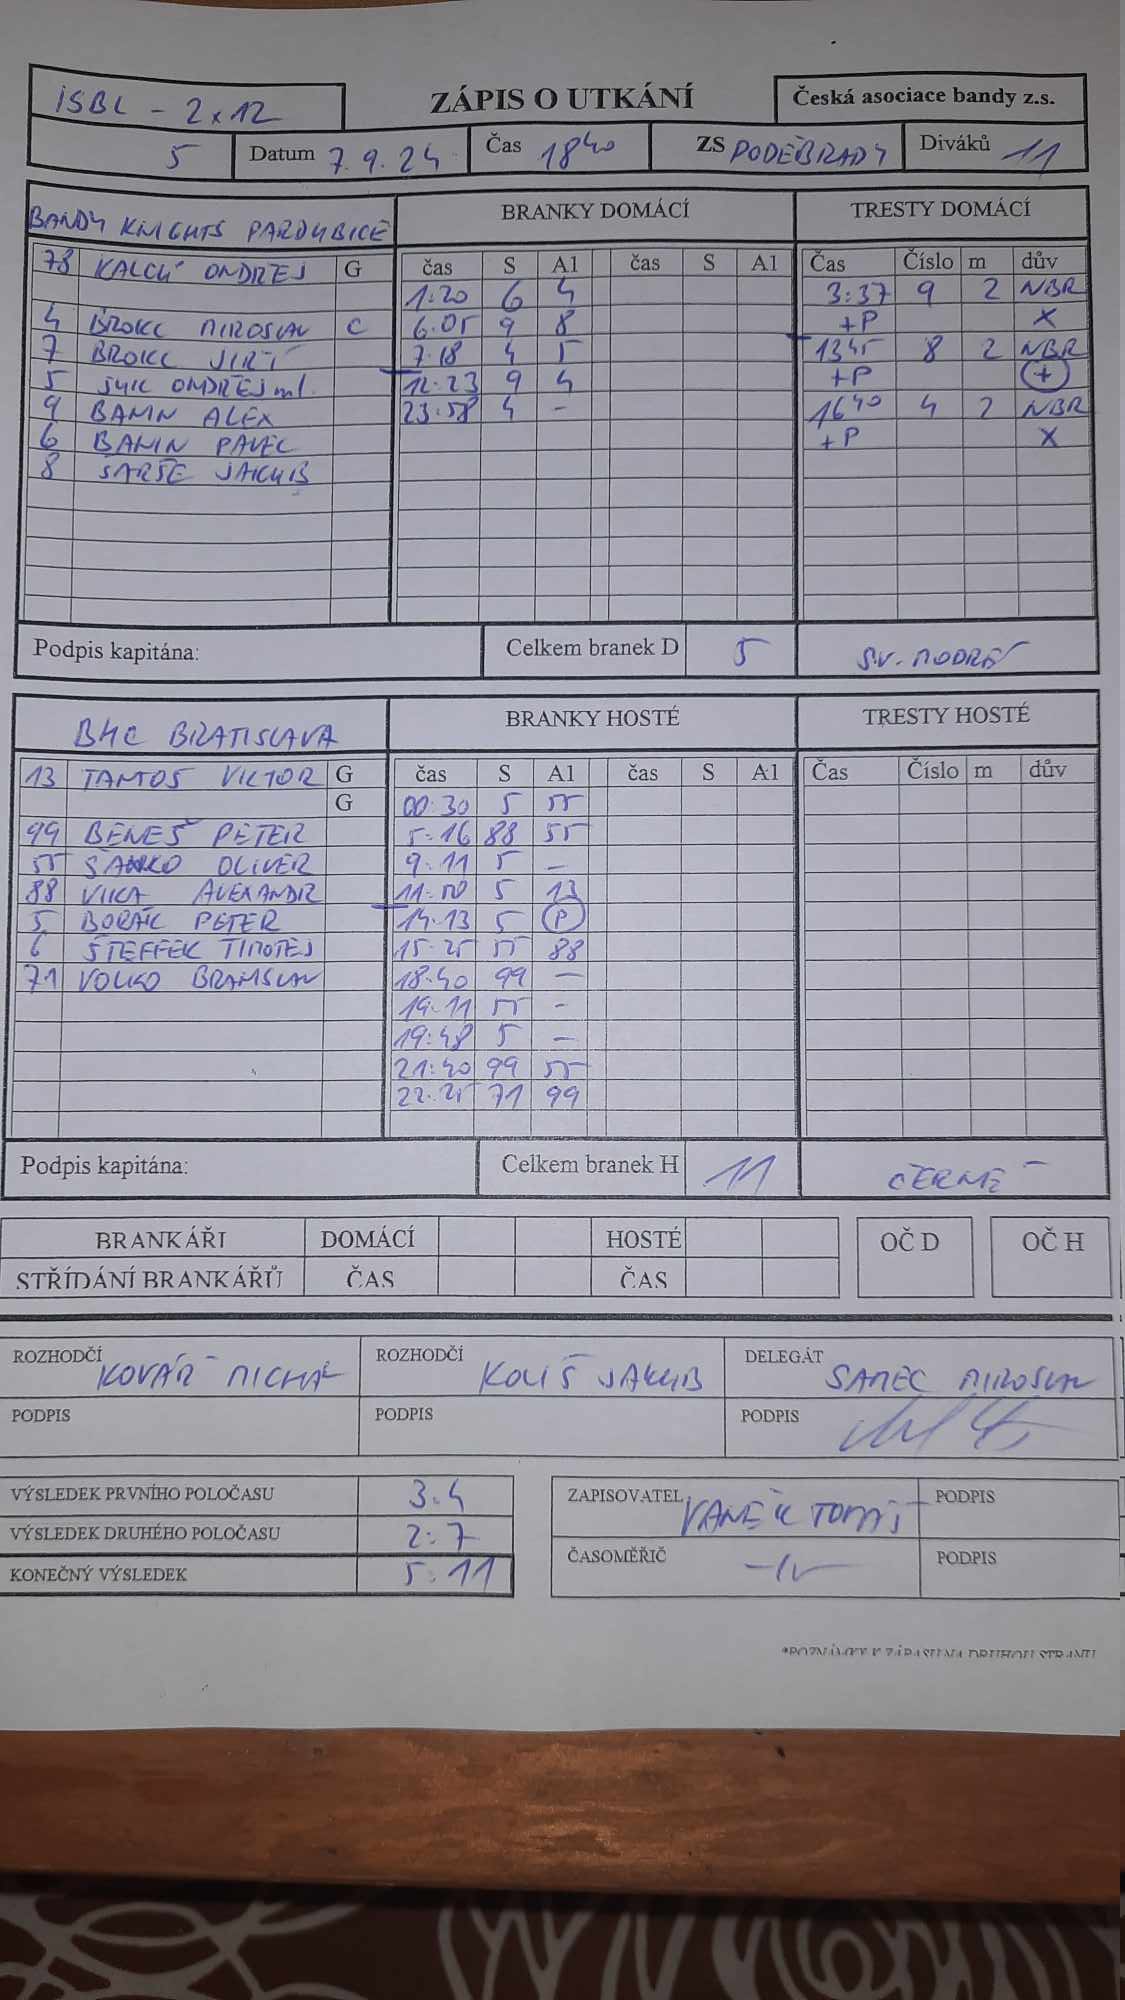 ISBL - 2x12 ZÁPIS O UTKÁNÍ Česká asociace bandy z.s.
5 Datum 7.9.24 Čas 18⁴⁰ ZS PODĚBRADY Diváků 11
BANDY KNIGHTS PARDUBICE BRANKY DOMÁCÍ TRESTY DOMÁCÍ
78 ONDŘEJ G čas S A1 čas S A1 Čas Číslo m dův
1:20 6 4 3:37 9 2 NBR
4 BROKL MIROSLAV C 6:05 9 8 +P X
7 BROKL JIŘÍ 7:18 4 5 13⁴⁵ 8 2 NBR
5 ONDŘEJ ml. 12:23 9 4 +P +
9 BANIN ALEX 23:58 4 - 16⁴⁰ 4 2 NBR
6 BANIN PAVEL +P X
8 ŠARŠE JAKUB
Podpis kapitána: Celkem branek D 5 SV. MODRÉ
BHC BRATISLAVA BRANKY HOSTÉ TRESTY HOSTÉ
13 VIKTOR G čas S A1 čas S A1 Čas Číslo m dův
G 00:30 5 55
99 BENEŠ PETER 5:16 88 55
55 SANKO OLIVER 9:11 5 -
88 ALEXANDR 11:00 5 13
5 BORÁK PETER 14:13 5 P
6 ŠTEFFEK TIMOTEJ 15:25 55 88
71 VOLKO BRANISLAV 18:40 99 -
19:11 55 -
19:48 5 -
21:40 99 55
22:25 71 99
Podpis kapitána: Celkem branek H 11 ČERNÉ
BRANKÁŘI DOMÁCÍ HOSTÉ OČ D OČ H
STŘÍDÁNÍ BRANKÁŘŮ ČAS ČAS
ROZHODČÍ KOVÁŘ MICHAL ROZHODČÍ KOLIŠ JAKUB DELEGÁT SAMEC MIROSLAV
PODPIS PODPIS PODPIS
VÝSLEDEK PRVNÍHO POLOČASU 3:4 ZAPISOVATEL VANĚK TOMÁŠ PODPIS
VÝSLEDEK DRUHÉHO POLOČASU 2:7
KONEČNÝ VÝSLEDEK 5:11 ČASOMĚŘIČ -//- PODPIS
*POZNÁMKY K ZÁPASU NA DRUHOU STRANU